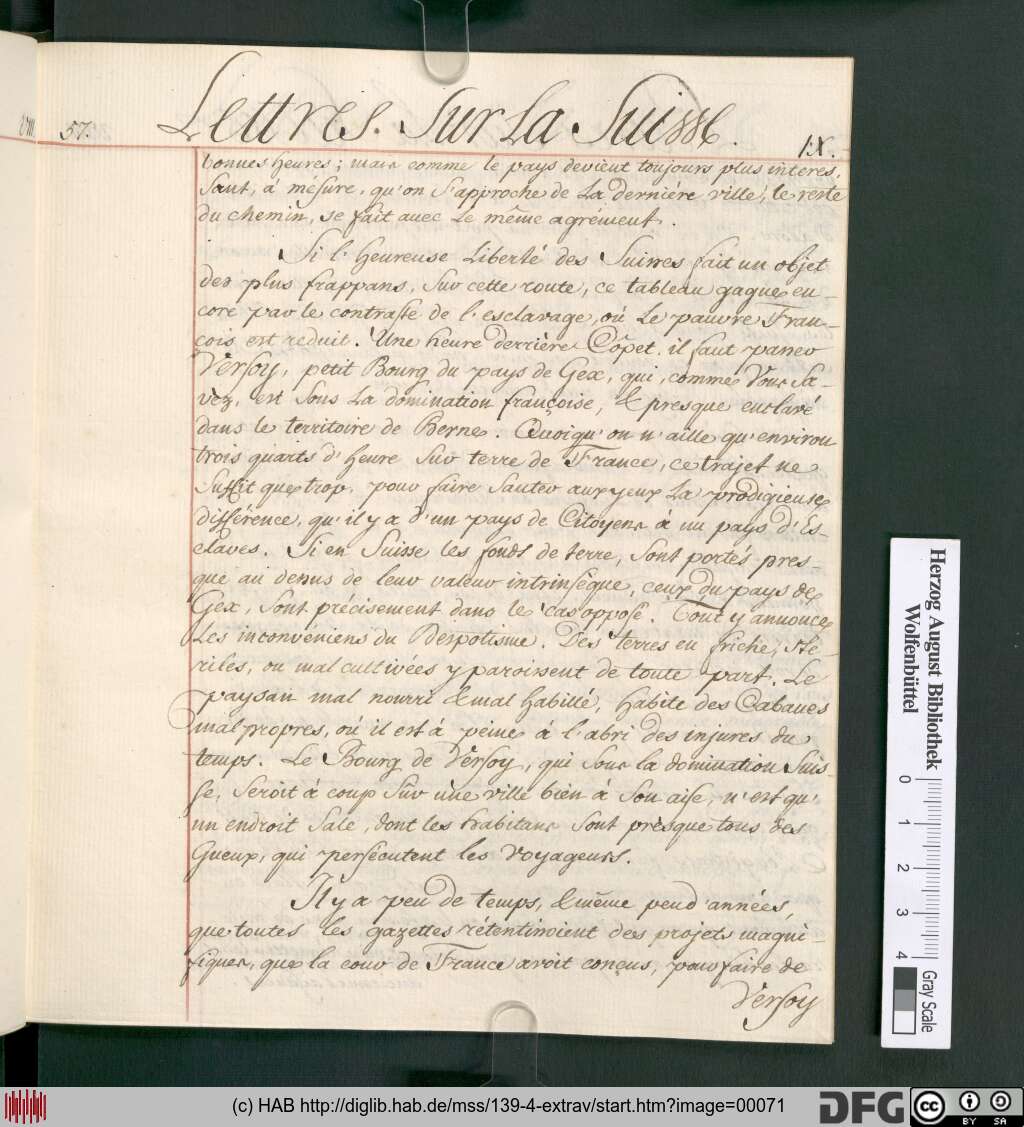 VIII.
57.
Lettres. Sur La Suisse.
IX.
bonnes heures; mais comme le pays devient toujours plus interes,
sant, à mésure, qu'on s'approche de La derniére ville, le reste
du chemin, se fait avec Le même agrément.
Si l'Heureuse Liberté des Suisses fait un objet
des plus frappans, sur cette route, ce tableau gagne en-
core par le contraste de l'esclavage, où Le pauvre Fran-
çois est reduit. Une heure derrière Côpet. il faut passer
Versoy, petit Bourg du pays de Gex, qui, comme Vous sa-
vez, est sous La domination françoise, & presque enclavé
dans le territoire de Berne. Quoiqu'on n'aille qu'environ
trois quarts d'heure sur terre de France, ce trajet ne
suffit que trop, pour faire sauter aux yeux La prodigieuse
différence, qu'il y a d'un pays de Citoyens à un pays d'Es-
claves. Si en Suisse les fonds de terre, sont portés pres-
que au dessus de leur valeur intrinsèque, ceux du pays de
Gex, sont précisement dans le cas opposé. Tout y annonce
Les inconveniens du Despotisme. Des terres en friche, sté-
riles, ou mal cultivées y paroissent de toute part. Le
paysan mal nourri & mal habillé, habite des Cabanes
mal propres, où il est à peine à l'abri des injures du
temps. Le Bourg de Versoy, qui sous la domination Suis-
se, seroit à coup sûr une ville bien à son aise, n'est qu'
un endroit sale, dont les habitans sont prèsque tous des
Gueux, qui persécutent les voyageurs.
Il y a peu de temps, & même peu d'années,
que toutes les gazettes rétentissoient des projets magni-
fiques, que la cour de France avoit conçus, pour faire de
Versoy
Herzog August Bibliothek
Wolfenbüttel
0 1 2 3 4
Gray Scale
(c) HAB http://diglib.hab.de/mss/139-4-extrav/start.htm?image=00071
DFG
cc BY SA